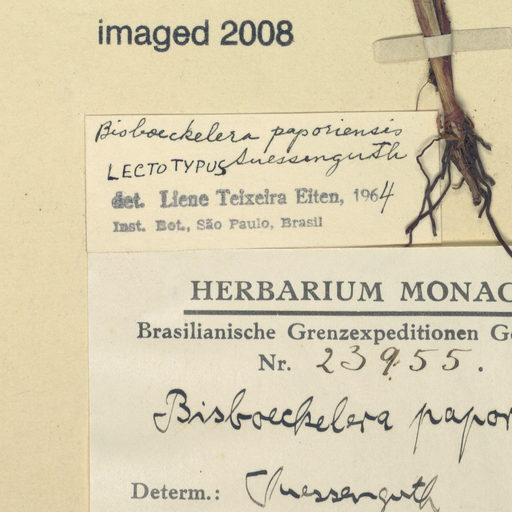 imaged 2008
Bisboeckelera paporiensis
LECTOTYPUS Suessenguth
det. Liene Teixeira Eiten, 1964
Inst. Bot., São Paulo, Brasil
HERBARIUM MONAC
Brasilianische Grenzexpeditionen G
Nr. 23955.
Bisboeckelera papor
Determ.: Suessenguth